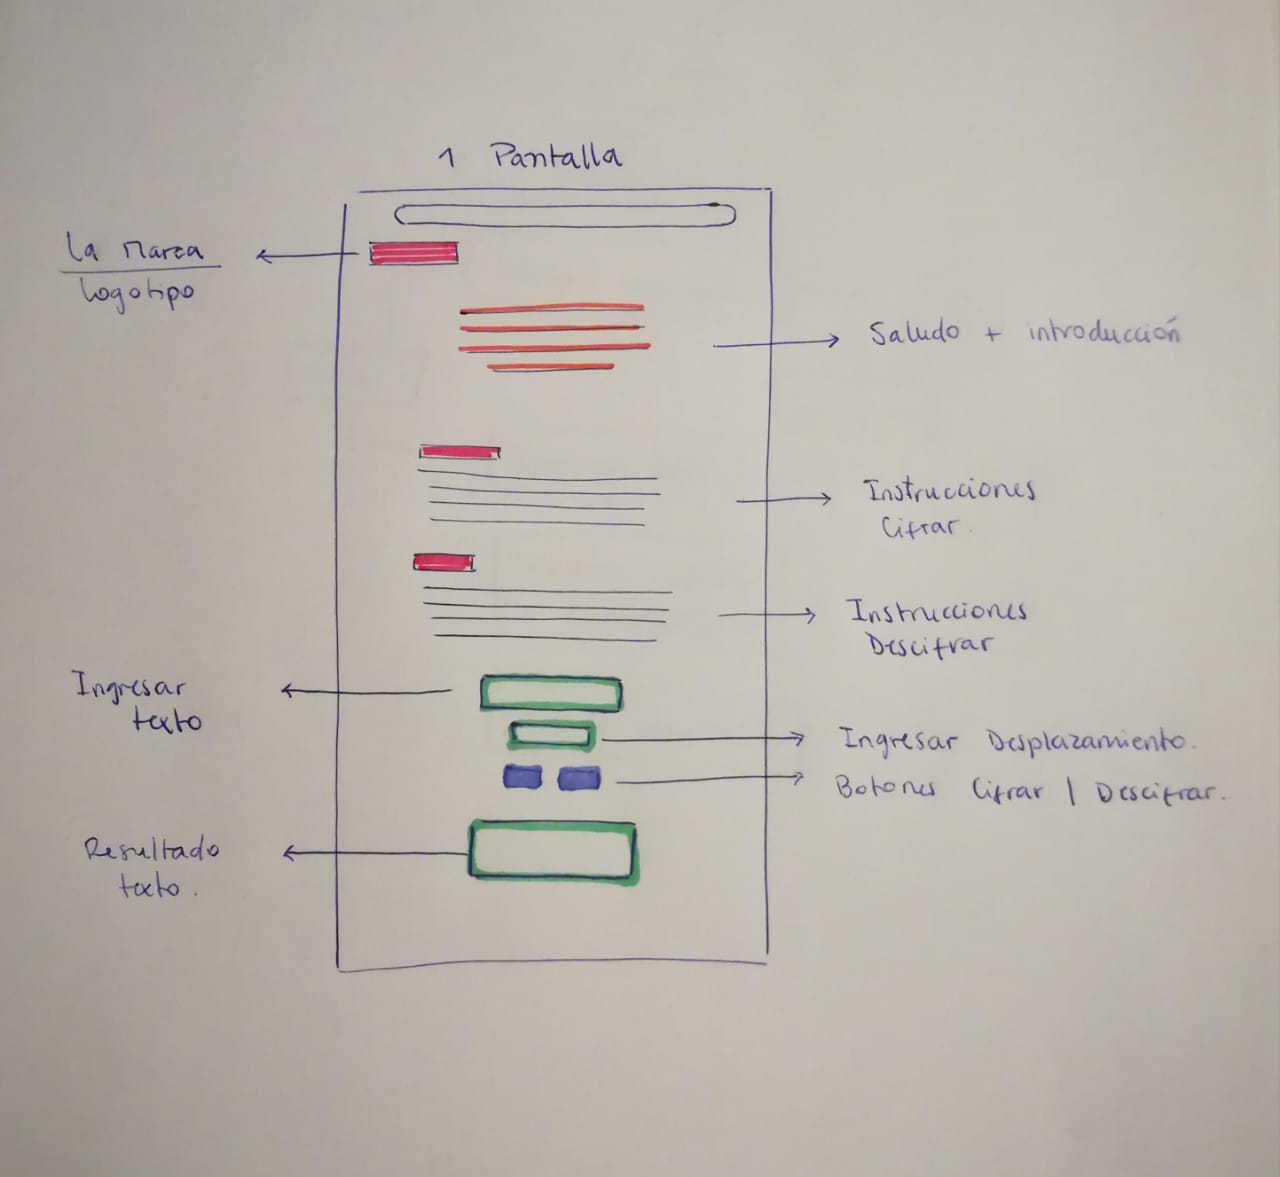 1 Pantalla
La Marca
logotipo
Saludo + introducción
Instrucciones
Cifrar.
Instrucciones
Descifrar
Ingresar
texto
Ingresar Desplazamiento.
Botones Cifrar | Descifrar.
Resultado
texto.